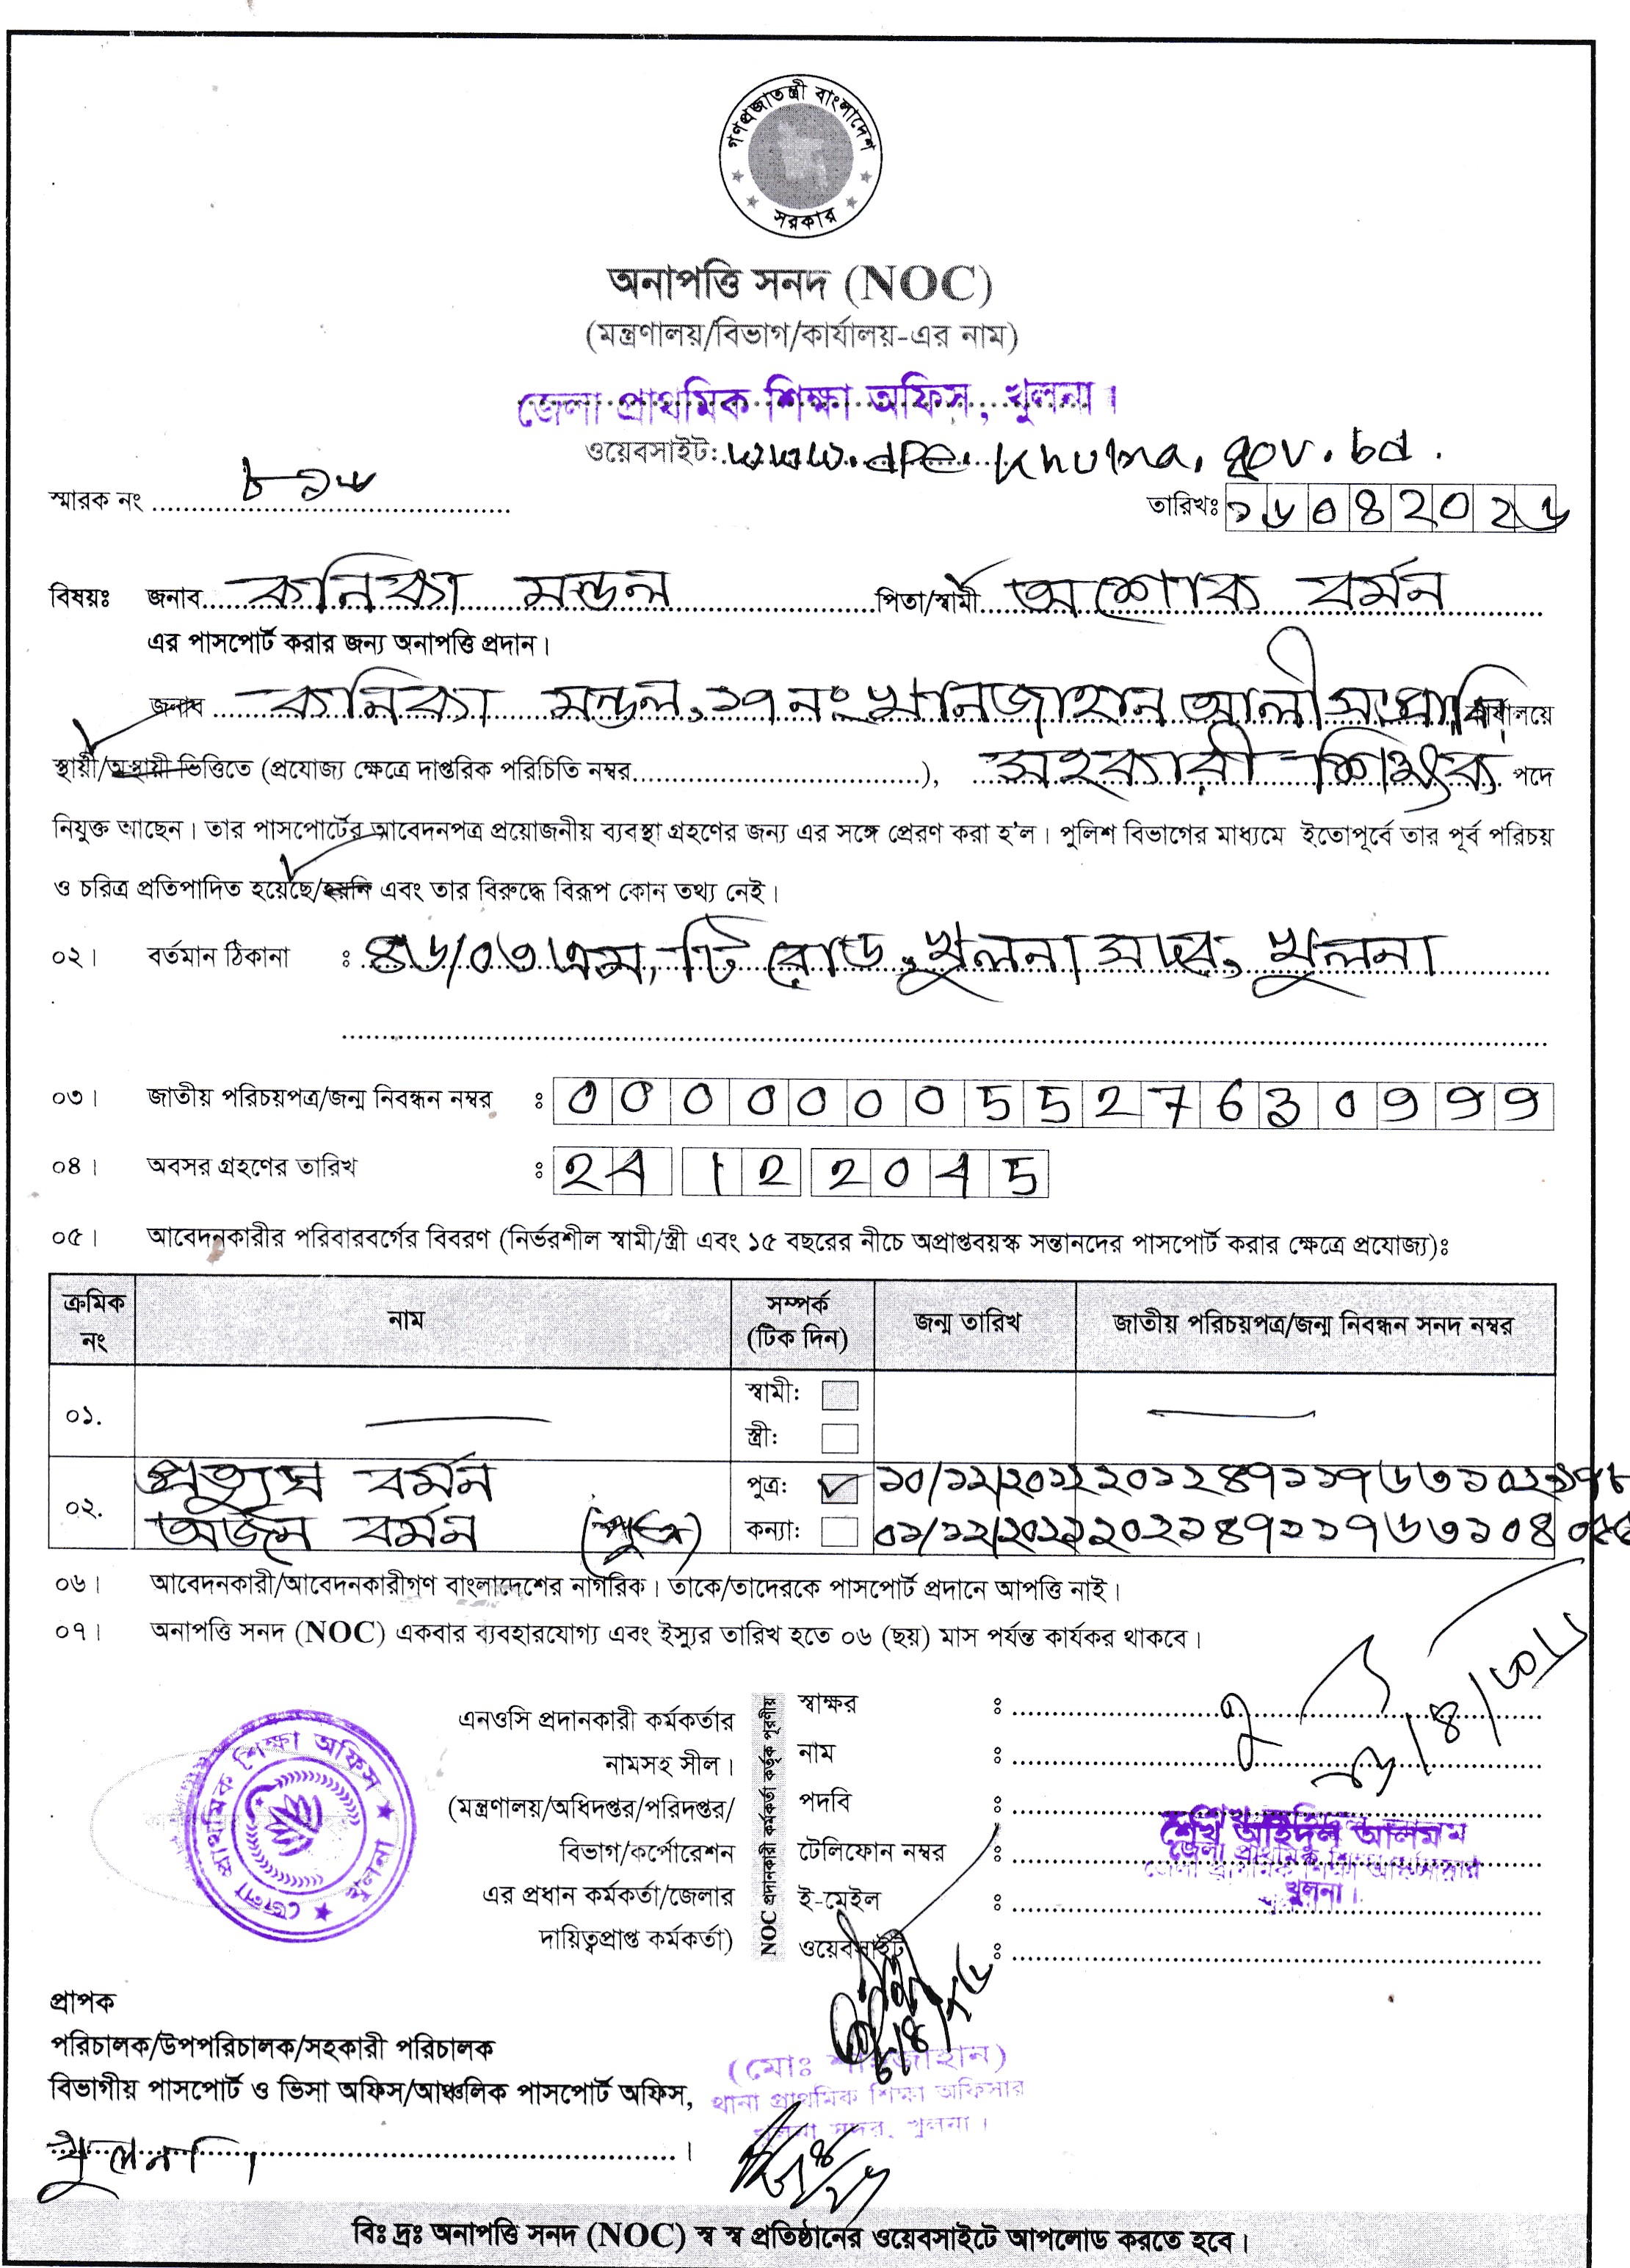 গণপ্রজাতন্ত্রী বাংলাদেশ
সরকার
অনাপত্তি সনদ (NOC)
(মন্ত্রণালয়/বিভাগ/কার্যালয়-এর নাম)
জেলা প্রাথমিক শিক্ষা অফিস, খুলনা।
ওয়েবসাইট: www.dpe.khulna.gov.bd.
স্মারক নং ৮১৮ তারিখঃ ১৬০৪২০২৬
বিষয়ঃ জনাব কনিকা মন্ডল পিতা/স্বামী অশোক বর্মন
এর পাসপোর্ট করার জন্য অনাপত্তি প্রদান।
জনাব কনিকা মন্ডল, ১৭ নং খানজাহান আলী সঃপ্রাঃবি কার্যালয়ে
স্থায়ী/অস্থায়ী ভিত্তিতে (প্রযোজ্য ক্ষেত্রে দাপ্তরিক পরিচিতি নম্বর..............................), সহকারী শিক্ষক পদে
নিযুক্ত আছেন। তার পাসপোর্টের আবেদনপত্র প্রয়োজনীয় ব্যবস্থা গ্রহণের জন্য এর সঙ্গে প্রেরণ করা হ'ল। পুলিশ বিভাগের মাধ্যমে ইতোপূর্বে তার পূর্ব পরিচয়
ও চরিত্র প্রতিপাদিত হয়েছে/হয়নি এবং তার বিরুদ্ধে বিরূপ কোন তথ্য নেই।
০২। বর্তমান ঠিকানা : ৪৬/০৩ এম, টি রোড, খুলনা সদর, খুলনা
০৩। জাতীয় পরিচয়পত্র/জন্ম নিবন্ধন নম্বর ঃ 00000005527630999
০৪। অবসর গ্রহণের তারিখ ঃ 24 12 2045
০৫। আবেদনকারীর পরিবারবর্গের বিবরণ (নির্ভরশীল স্বামী/স্ত্রী এবং ১৫ বছরের নীচে অপ্রাপ্তবয়স্ক সন্তানদের পাসপোর্ট করার ক্ষেত্রে প্রযোজ্য)ঃ
ক্রমিক নং নাম সম্পর্ক (টিক দিন) জন্ম তারিখ জাতীয় পরিচয়পত্র/জন্ম নিবন্ধন সনদ নম্বর
০১. স্বামী:
স্ত্রী:
০২. প্রত্যুষ বর্মন পুত্র: ✓ ১০/১২/২০১২
অর্জন বর্মন (পুত্র) কন্যা:
০৬। আবেদনকারী/আবেদনকারীগণ বাংলাদেশের নাগরিক। তাকে/তাদেরকে পাসপোর্ট প্রদানে আপত্তি নাই।
০৭। অনাপত্তি সনদ (NOC) একবার ব্যবহারযোগ্য এবং ইস্যুর তারিখ হতে ০৬ (ছয়) মাস পর্যন্ত কার্যকর থাকবে।
জেলা প্রাথমিক শিক্ষা অফিস
খুলনা
এনওসি প্রদানকারী কর্মকর্তার
নামসহ সীল।
(মন্ত্রণালয়/অধিদপ্তর/পরিদপ্তর/
বিভাগ/কর্পোরেশন
এর প্রধান কর্মকর্তা/জেলার
দায়িত্বপ্রাপ্ত কর্মকর্তা)
NOC প্রদানকারী কর্মকর্তা কর্তৃক পূরণীয়
স্বাক্ষর ঃ
নাম ঃ
পদবি ঃ
টেলিফোন নম্বর ঃ
ই-মেইল ঃ
ওয়েবসাইট ঃ
শেখ অহিদুল আলম
জেলা প্রাথমিক শিক্ষা অফিসার
খুলনা।
প্রাপক
পরিচালক/উপপরিচালক/সহকারী পরিচালক
বিভাগীয় পাসপোর্ট ও ভিসা অফিস/আঞ্চলিক পাসপোর্ট অফিস,
খুলনা।
(মোঃ শাহজাহান)
থানা প্রাথমিক শিক্ষা অফিসার
খুলনা সদর, খুলনা।
বিঃ দ্রঃ অনাপত্তি সনদ (NOC) স্ব স্ব প্রতিষ্ঠানের ওয়েবসাইটে আপলোড করতে হবে।